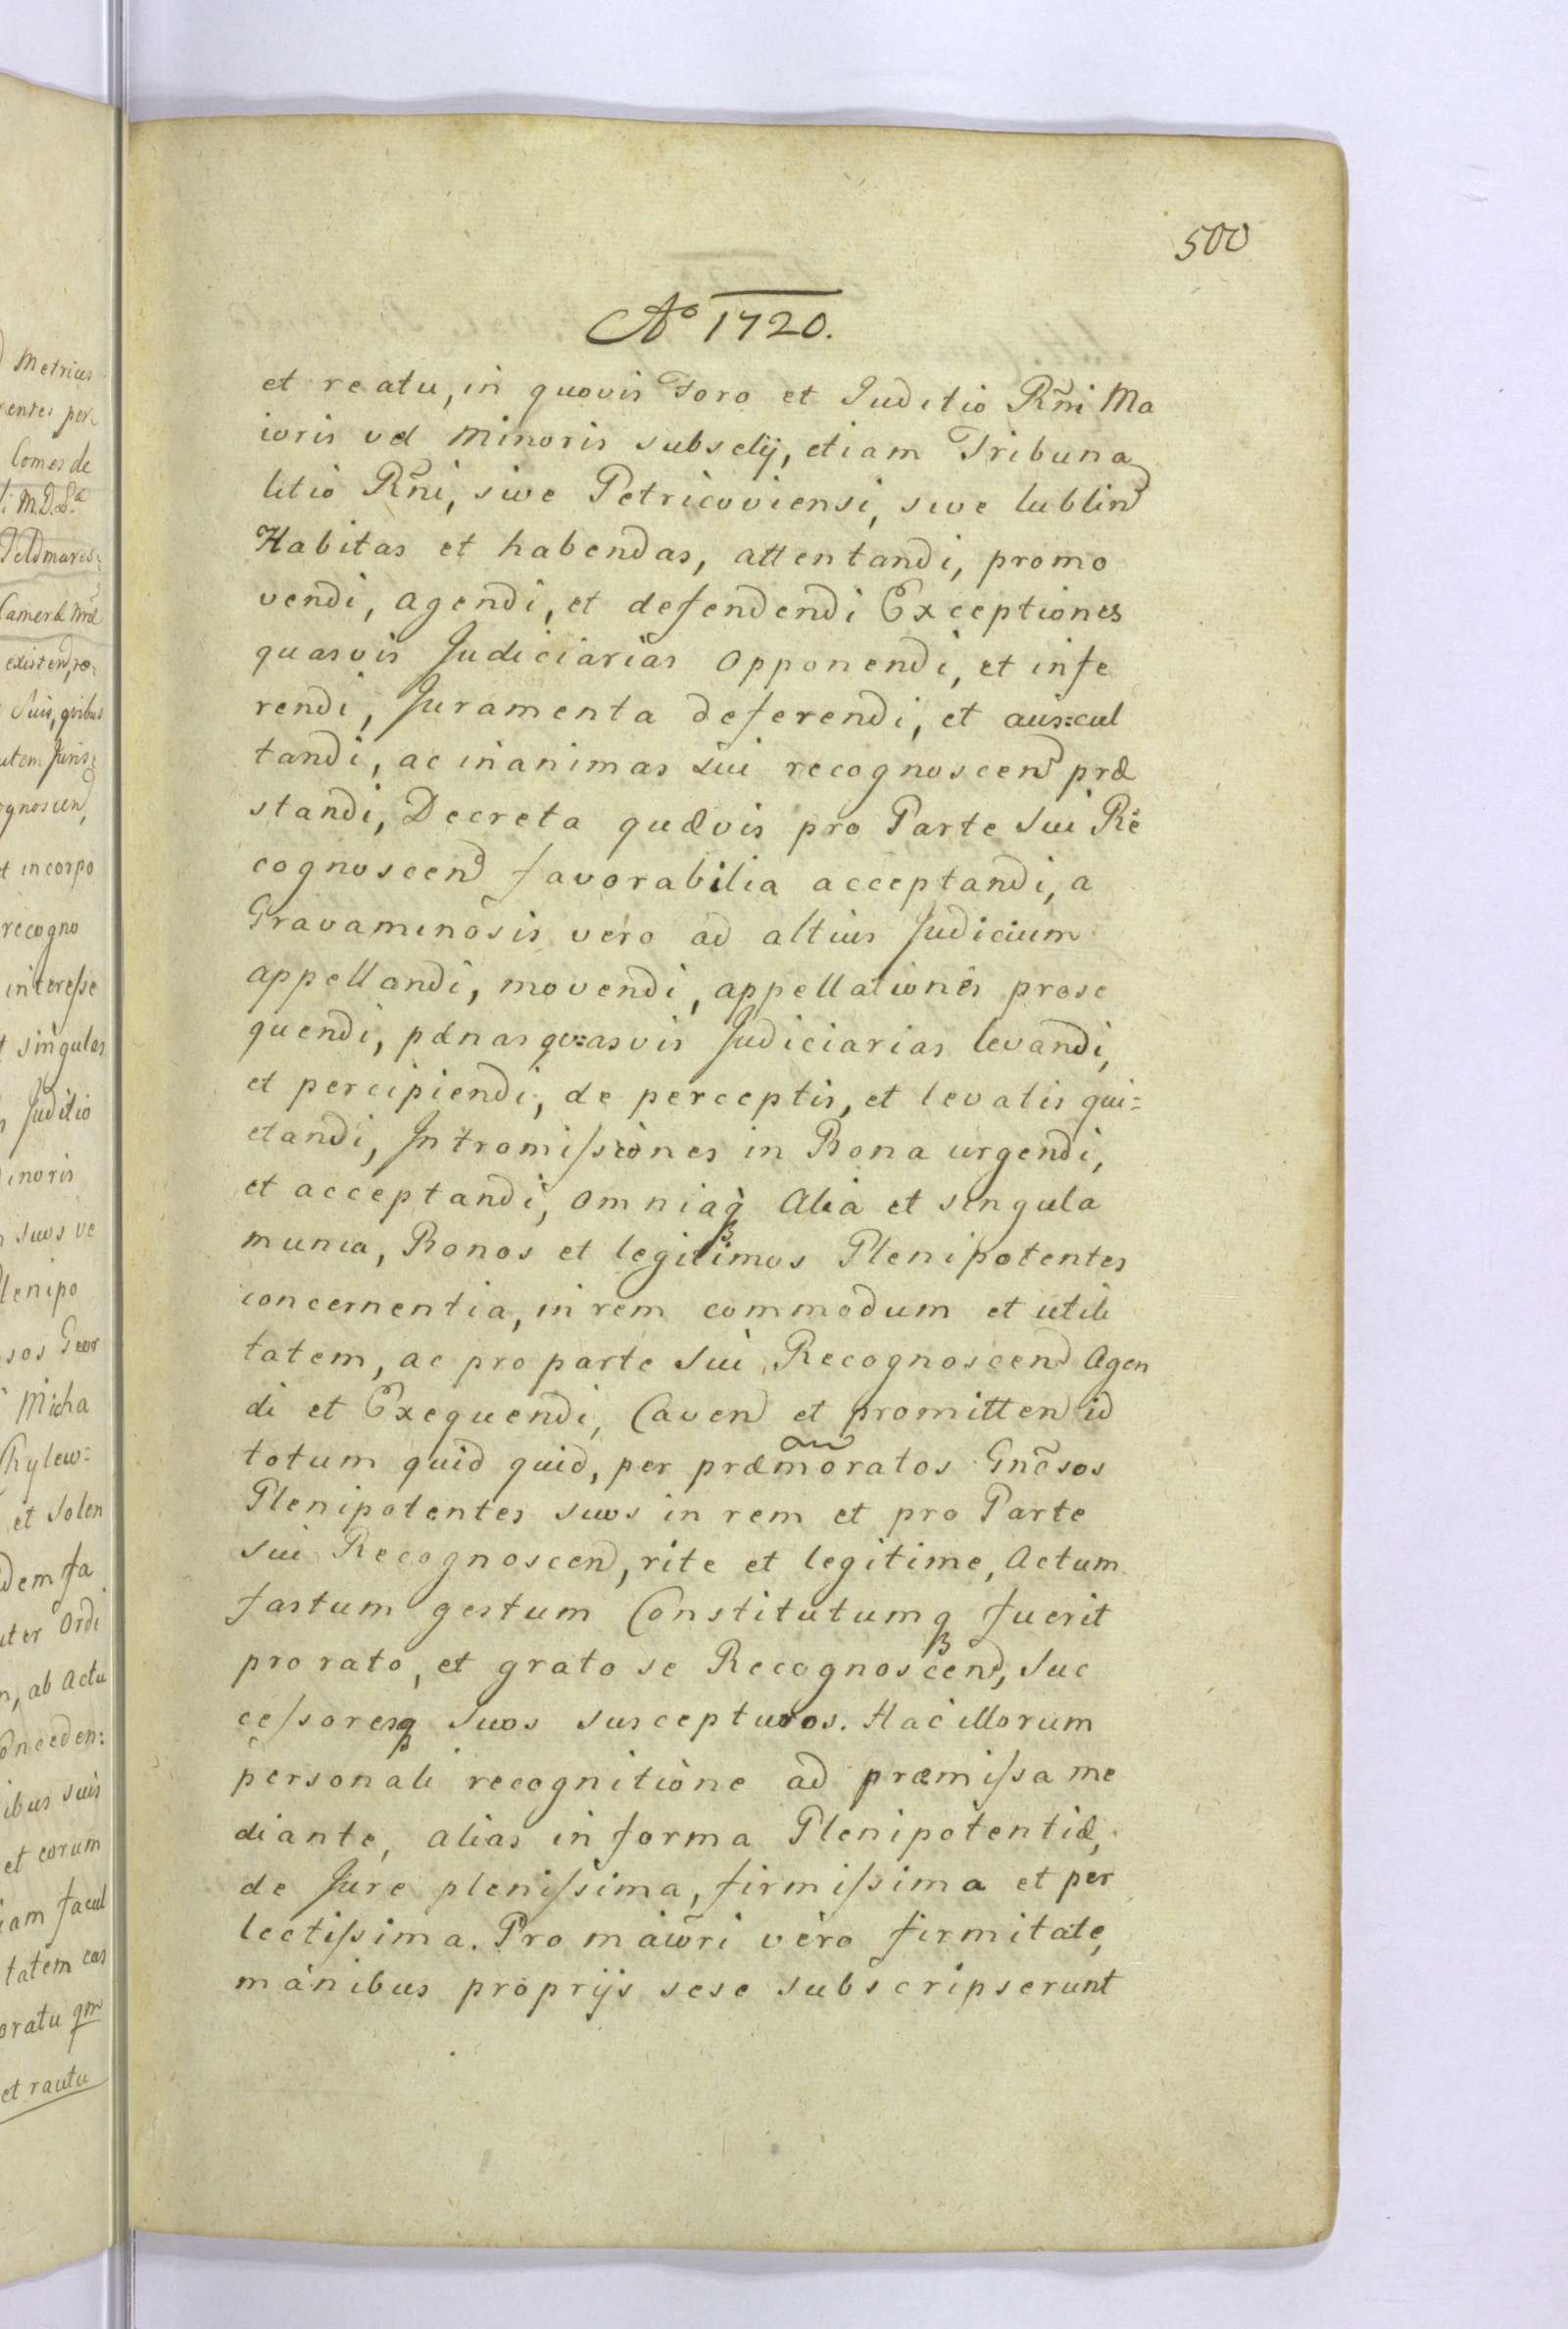 500
Aº 1720.
et reatu, in quovis Foro et Juditio Rñi Ma
ioris vel Minoris subselij, etiam Tribuna
litio Rñi, sive Petricoviensi, sive lublin
Habitas et habendas, attentandi, promo
vendi, agendi, et defendendi Exceptiones
quasvis Judiciarias opponendi, et infe
rendi, Juramenta deferendi, et aus:cul
tandi, ac in animas sui recognoscen præ
standi, Decreta quævis pro Parte sui Re
cognoscen favorabilia acceptandi, a
Gravaminosis vero ad altius Judicium
appellandi, movendi, appellationes prose
quendi, pænas qu:asvis Judiciarias levandi,
et percipiendi, de perceptis, et levatis qui=
etandi, Intromiſsiones in Bona urgendi,
et acceptandi, omniaq̀ alia et singula
munia, Bonos et legitimos Plenipotentes
concernentia, in rem commodum et utili
tatem, ac pro parte sui Recognoscen Agen
di et Exequendi, Caven et promitten id
totum quid quid, per præmõratos Gnõsos
Plenipotentes suos in rem et pro Parte
sui Recognoscen, rite et legitime, Actum
fastum gestum Constitutumq fuerit
pro rato, et grato se Recognoscen, suc
ceſsoresq suos suscepturos. Hac illorum
personali recognitione ad præmiſsa me
diante, alias in forma Plenipotentiæ,
de Jure pleniſsima, firmiſsima et per
lectiſsima. Pro maiori vero firmitate,
manibus proprijs sese subscripserunt
Metrices
Comes de
M.D.L.
Feldmares:
existen
suis, quibus
Juris:
et incorpo
recogno
intereſse
singulas
Juditio
inoris
suos ve
lenipo
sos Geor
Micha
Chylew=
et solen
dem fa
iter Ordi
, ab actu
onceden:
ibus suis
et eorum
iam facul
tatem eas
oratu qm
et rautu